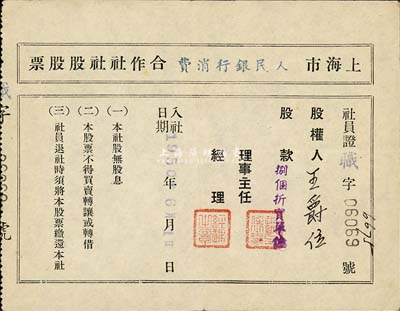 上海市人民銀行消費合作社社股股票
社員證職字06069號
5699
股權人王爵位
股款捌個折實單位
理事主任
經理
入社日期 年 月 日
(一) 本社股無股息
(二) 本股票不得買賣轉讓或轉借
(三) 社員退社時須將本股票繳還本社